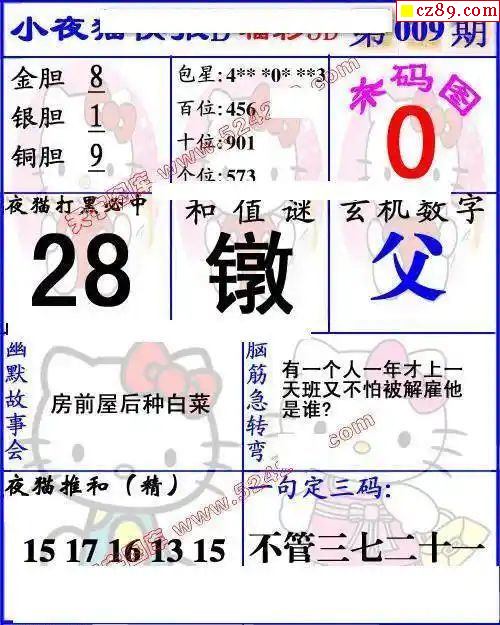 cz89.com
小夜猫快报D 福彩3D 第009期
金胆 8
银胆 1
铜胆 9
包星: 4** *0* **3
百位: 456
十位: 901
个位: 573
本码图
0
夜猫打黑必中
28
和值谜
镦
玄机数字
父
幽默故事会
房前屋后种白菜
脑筋急转弯
有一个人一年才上一
天班又不怕被解雇他
是谁?
夜猫推和(精)
15 17 16 13 15
一句定三码:
不管三七二十一